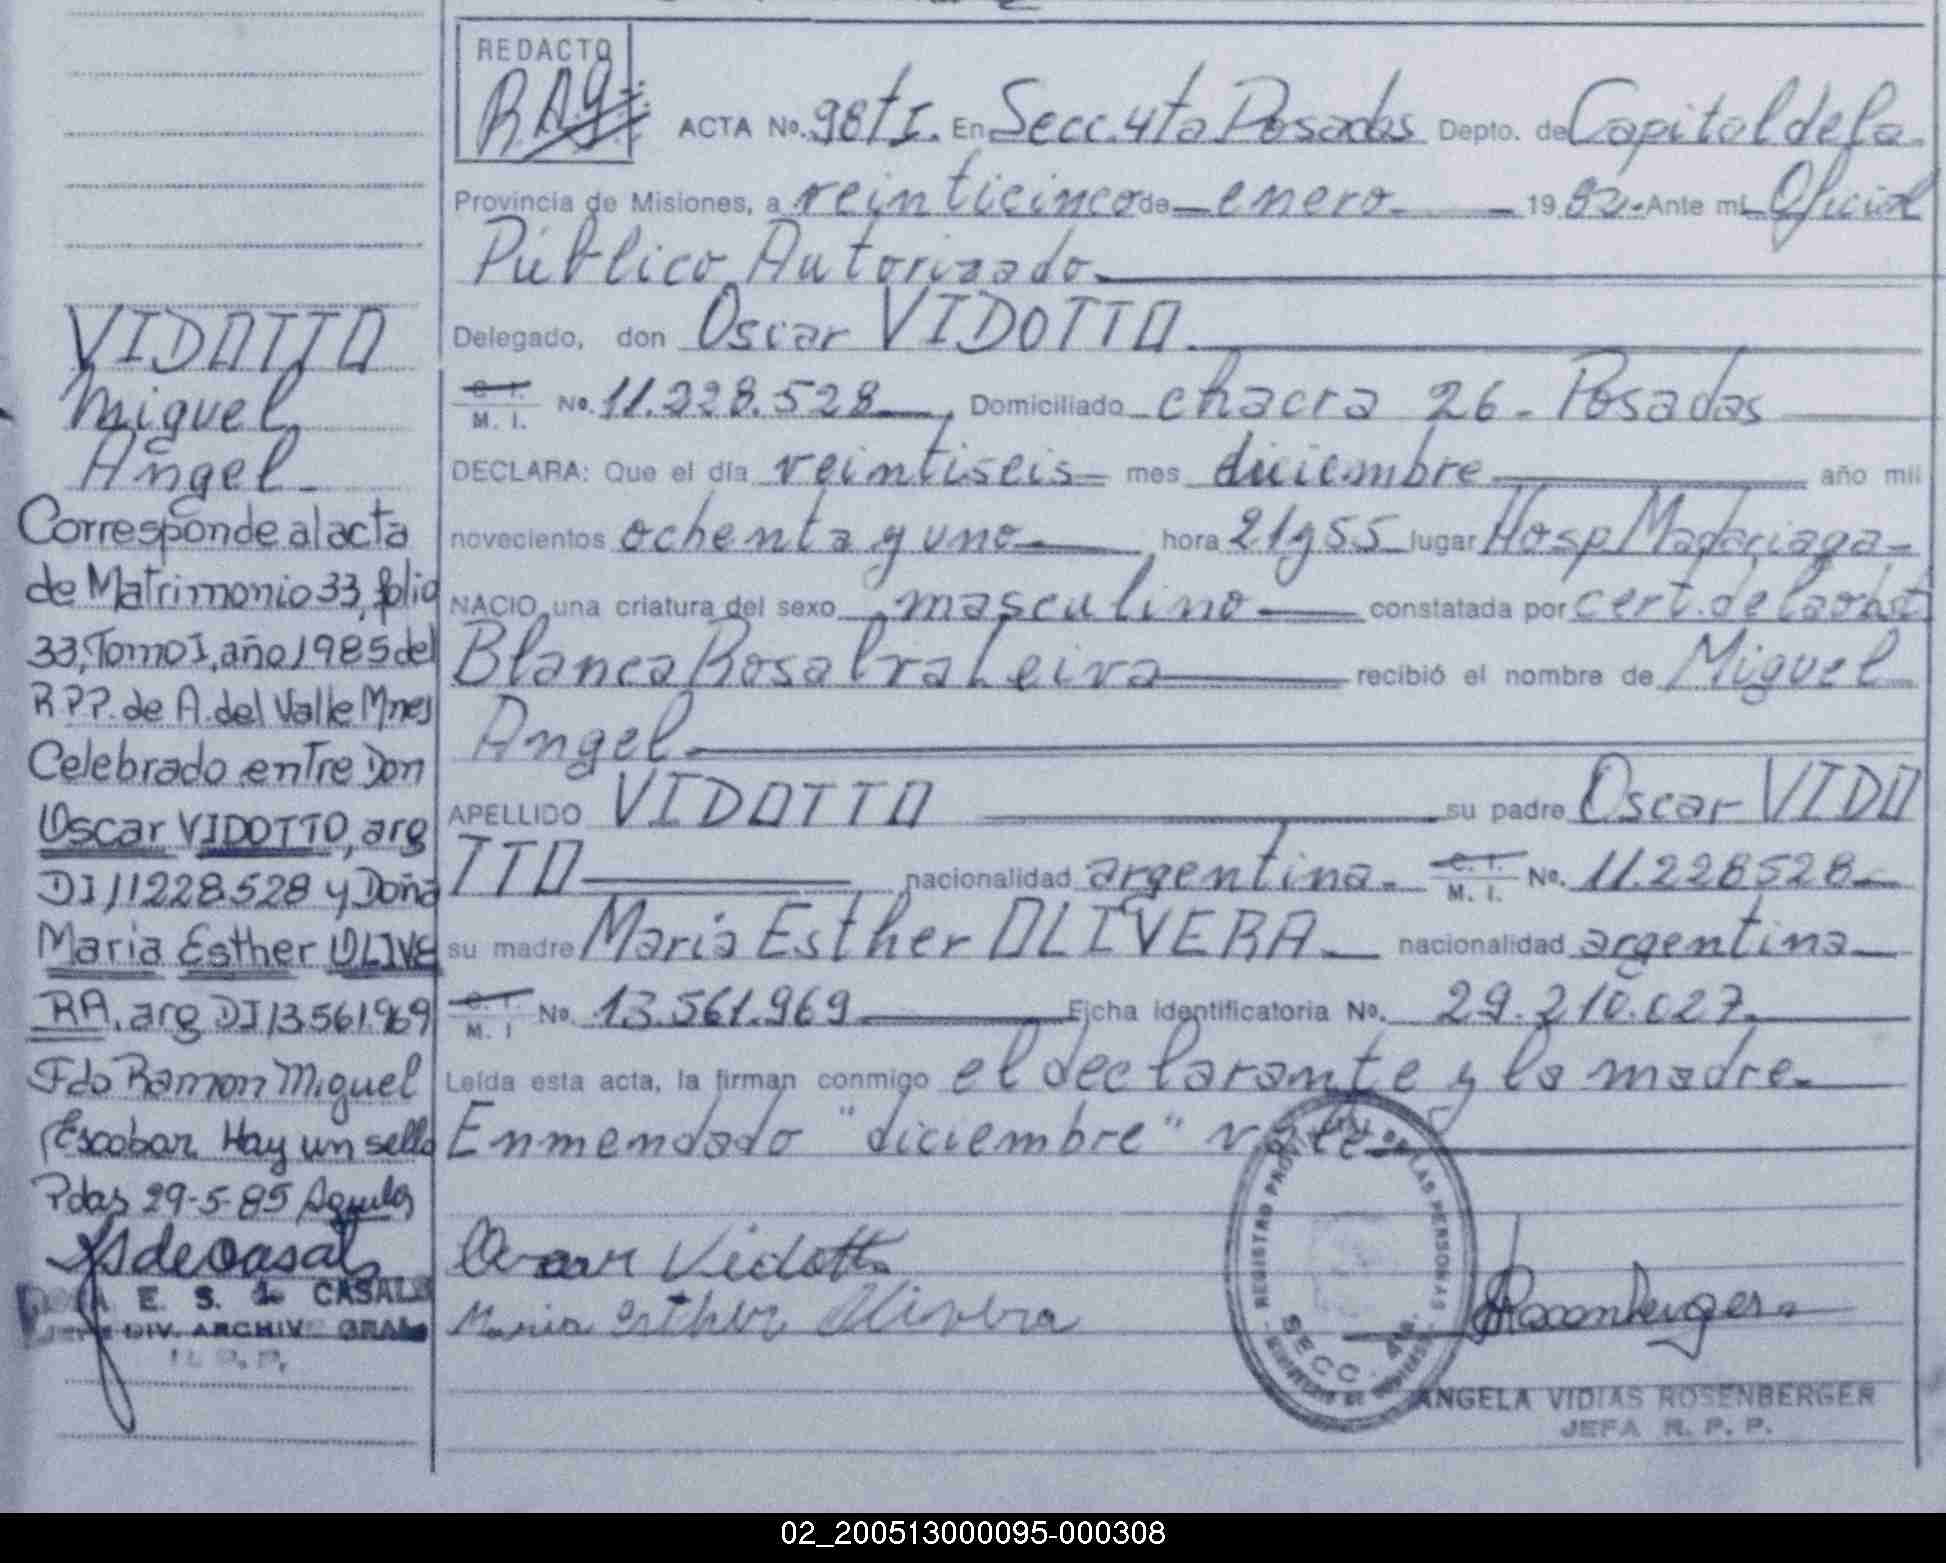 REDACTO
ACTA No. 98 t I. En Secc. 4ta Posadas Depto. de Capital de la
Provincia de Misiones, a veinticinco de enero 1982. Ante mi Oficial
Público Autorizado
Delegado, don Oscar VIDOTTO
C. I. / M. I. No. 11.228.528, Domiciliado chacra 26 - Posadas
DECLARA: Que el día veintiseis mes diciembre año mil
novecientos ochenta y uno hora 21 y 55 lugar Hosp Madariaga
NACIO una criatura del sexo masculino constatada por cert. de la obst
Blanca Rosalva Leiva recibió el nombre de Miguel
Angel
APELLIDO VIDOTTO su padre Oscar VIDO
TTO nacionalidad argentina. C. I. / M. I. No. 11.228528
su madre Maria Esther OLIVERA nacionalidad argentina
C. I. / M. I No. 13.561.969 Ficha identificatoria No. 29.210.027
Leída esta acta, la firman conmigo el declarante y la madre.
Enmendado "diciembre" vale
Oscar Vidotto
Maria Esther Olivera
Rosenberger
REGISTRO PROVINCIAL DE LAS PERSONAS
SECC. 4ta.
ANGELA VIDIAS ROSENBERGER
JEFA R. P. P.
VIDOTTO
Miguel
Angel
Corresponde al acta
de Matrimonio 33, folio
33, Tomo I, año 1985 del
R P P. de A. del Valle Mnes
Celebrado entre Don
Oscar VIDOTTO, arg
DI 11228.528 y Doña
Maria Esther OLIVE
RA, arg DI 13.561.969
Fdo Ramon Miguel
Escobar. Hay un sello
Pdas 29-5-85
E. S. de CASALS
DIV. ARCHIV GRAL
R. P. P.
02_200513000095-000308